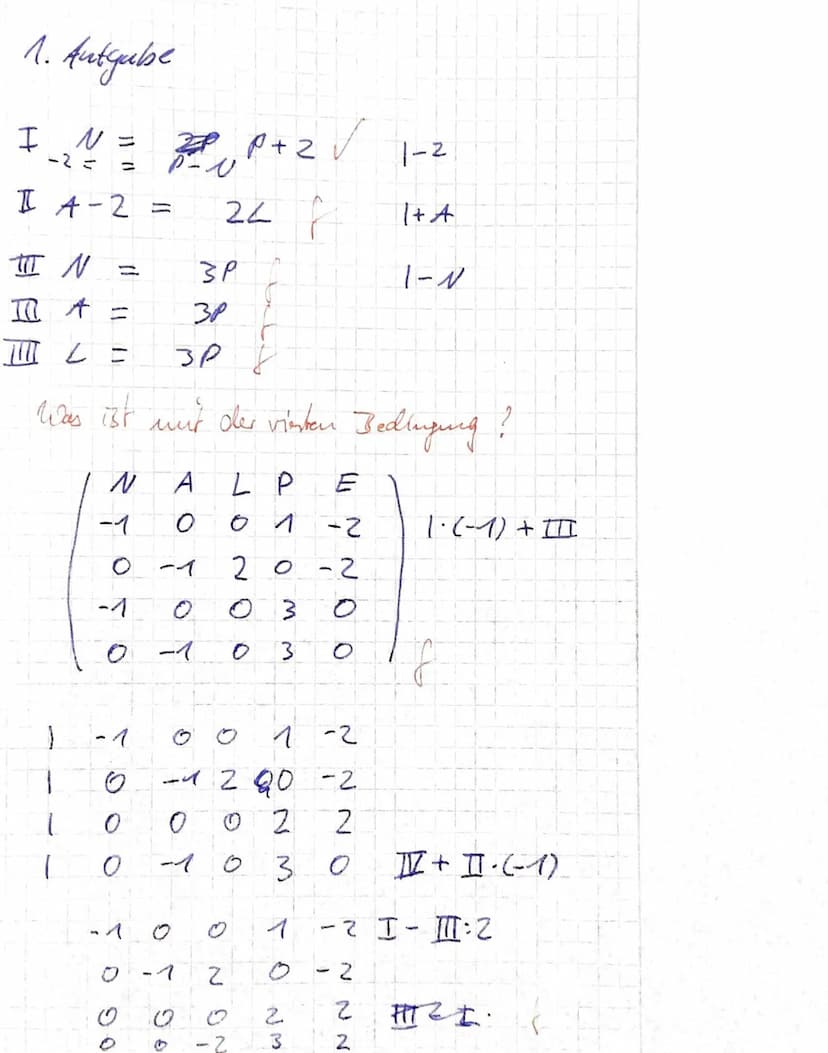 1. Aufgabe
I N = P + 2 ✓ | -2
-2 = = P - N
II A - 2 = 2L f | + A
III N = 3P f | - N
III A = 3P f
IIII L = 3P f
Was ist mit der vierten Bedingung?
N A L P E
-1 0 0 1 -2 | · (-1) + III
0 -1 2 0 -2
-1 0 0 3 0
0 -1 0 3 0 f
| -1 0 0 1 -2
| 0 -1 2 0 -2
| 0 0 0 2 2
| 0 -1 0 3 0 IV + II · (-1)
-1 0 0 1 -2 I - III : 2
0 -1 2 0 -2
0 0 0 2 2
0 0 -2 3 2